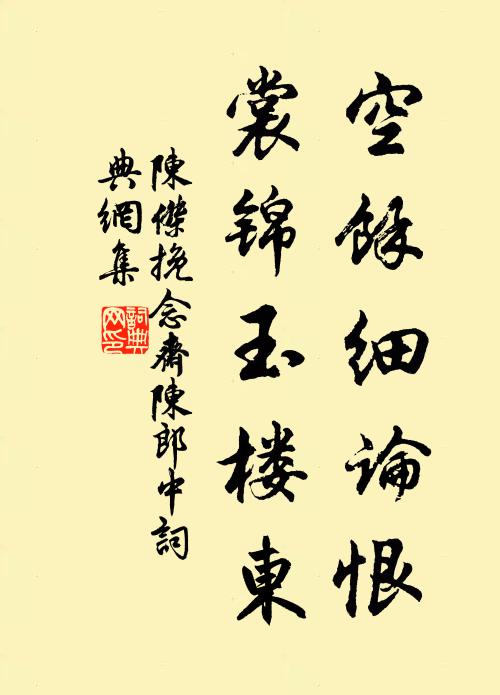 空餘細論恨
裳錦玉楼東
陳傑挽念齋陳郎中詞
典網集
詞典网印